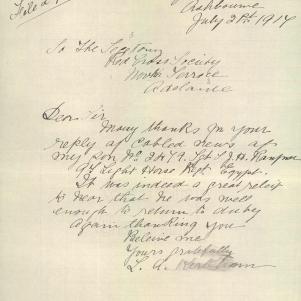 Ashbourne
July 21st 191
To The Secretary
Red Cross Society
North Terrace
Adelaide
Dear Sir
Many thanks for your
reply of Cabled news of
my Son No 2479
9th Light Horse Regt Egypt.
It was indeed a great relief
to hear that he was well
enough to return to duty
Again thanking you
Believe me
Yours gratefully
L.